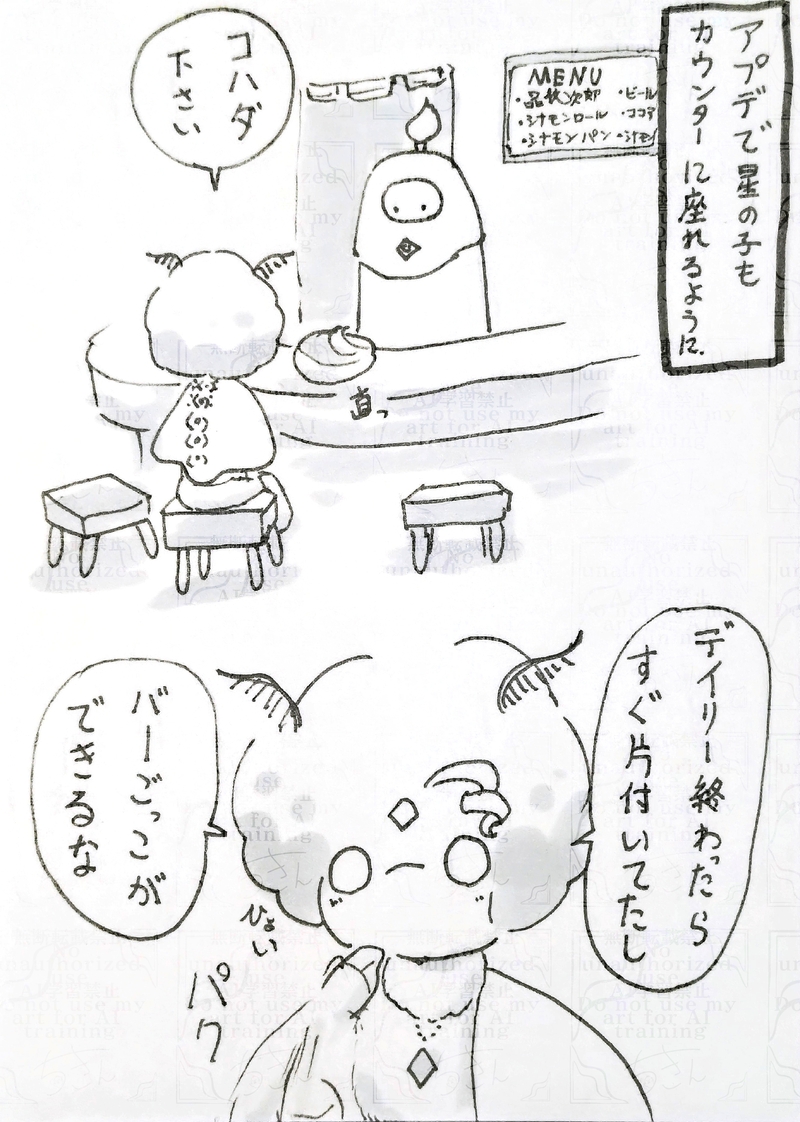 アプデで星の子も
カウンターに座れるように.
MENU
・品故次郎 ・ビール
・シナモンロール ・ココア
・シナモンパン ・シナモン
コハダ
下さい
直っ
デイリー終わったら
すぐ片付いてたし
バーごっこが
できるな
ひょい
パク